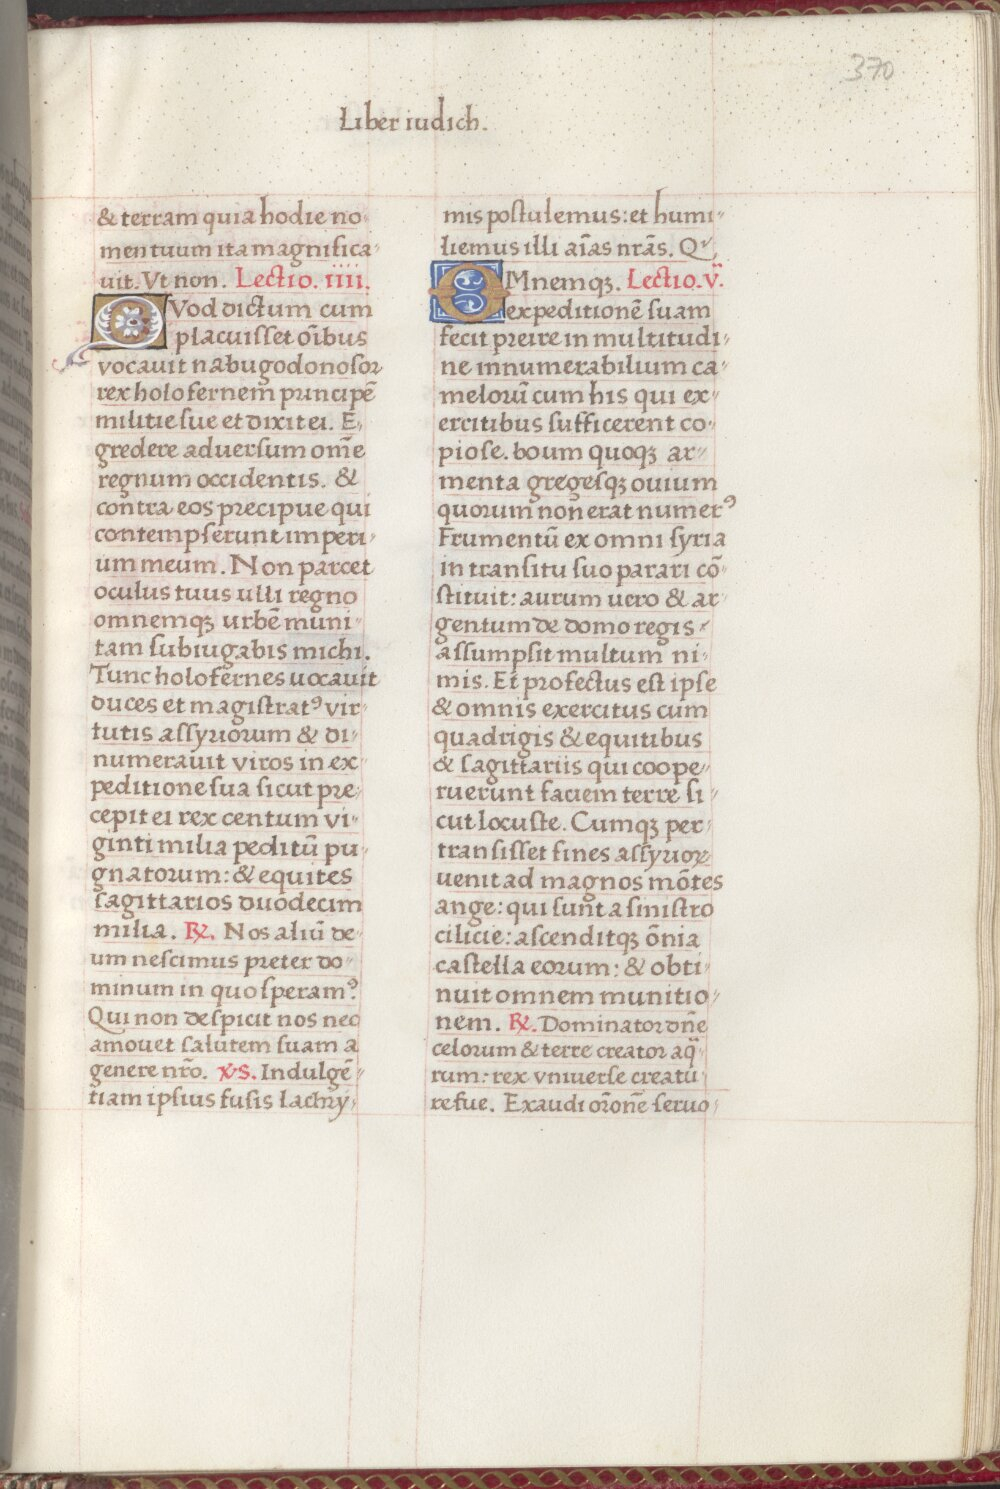 370
Liber iudich.
& terram quia hodie no-
men tuum ita magnifica-
uit. Vt non. Lectio. IIII.
QVod dictum cum
placuisset oībus
vocauit nabugodonosor
rex holofernem principē
militie sue et dixit ei. E-
gredere aduersum om̄e
regnum occidentis. &
contra eos precipue qui
contempserunt imperi-
um meum. Non parcet
oculus tuus ulli regno
omnemqꝫ urbē muni-
tam subiugabis michi.
Tunc holofernes uocauit
duces et magistratꝰ vir-
tutis assyriorum & di-
numerauit viros in ex-
peditione sua sicut pre-
cepit ei rex centum vi-
ginti milia peditū pu-
gnatorum: & equites
sagittarios duodecim
milia. ℟. Nos aliū de-
um nescimus preter do-
minum in quo speramꝰ.
Qui non despicit nos nec
amouet salutem suam a
genere nr̄o. xS. Indulgē-
tiam ipsius fusis lachry-
mis postulemus: et humi-
liemus illi aīas nrās. Q
OMnemqꝫ. Lectio. V.
expeditionē suam
fecit preire in multitudi-
ne innumerabilium ca-
melorū cum his qui ex-
ercitibus sufficerent co-
piose. boum quoqꝫ ar-
menta gregesqꝫ ouium
quorum non erat numerꝰ
Frumentū ex omni syria
in transitu suo parari cō-
stituit: aurum uero & ar-
gentum de domo regis
assumpsit multum ni-
mis. Et profectus est ipse
& omnis exercitus cum
quadrigis & equitibus
& sagittariis qui coope-
ruerunt faciem terre si-
cut locuste. Cumqꝫ per-
transisset fines assyrioꝝ
uenit ad magnos mōtes
ange: qui sunt a sinistro
cilicie: ascenditqꝫ ōnia
castella eorum: & obti-
nuit omnem munitio-
nem. ℟. Dominator dn̄e
celorum & terre creator aq̄-
rum: rex vniuerse creatu-
re sue. Exaudi orōnē seruo-